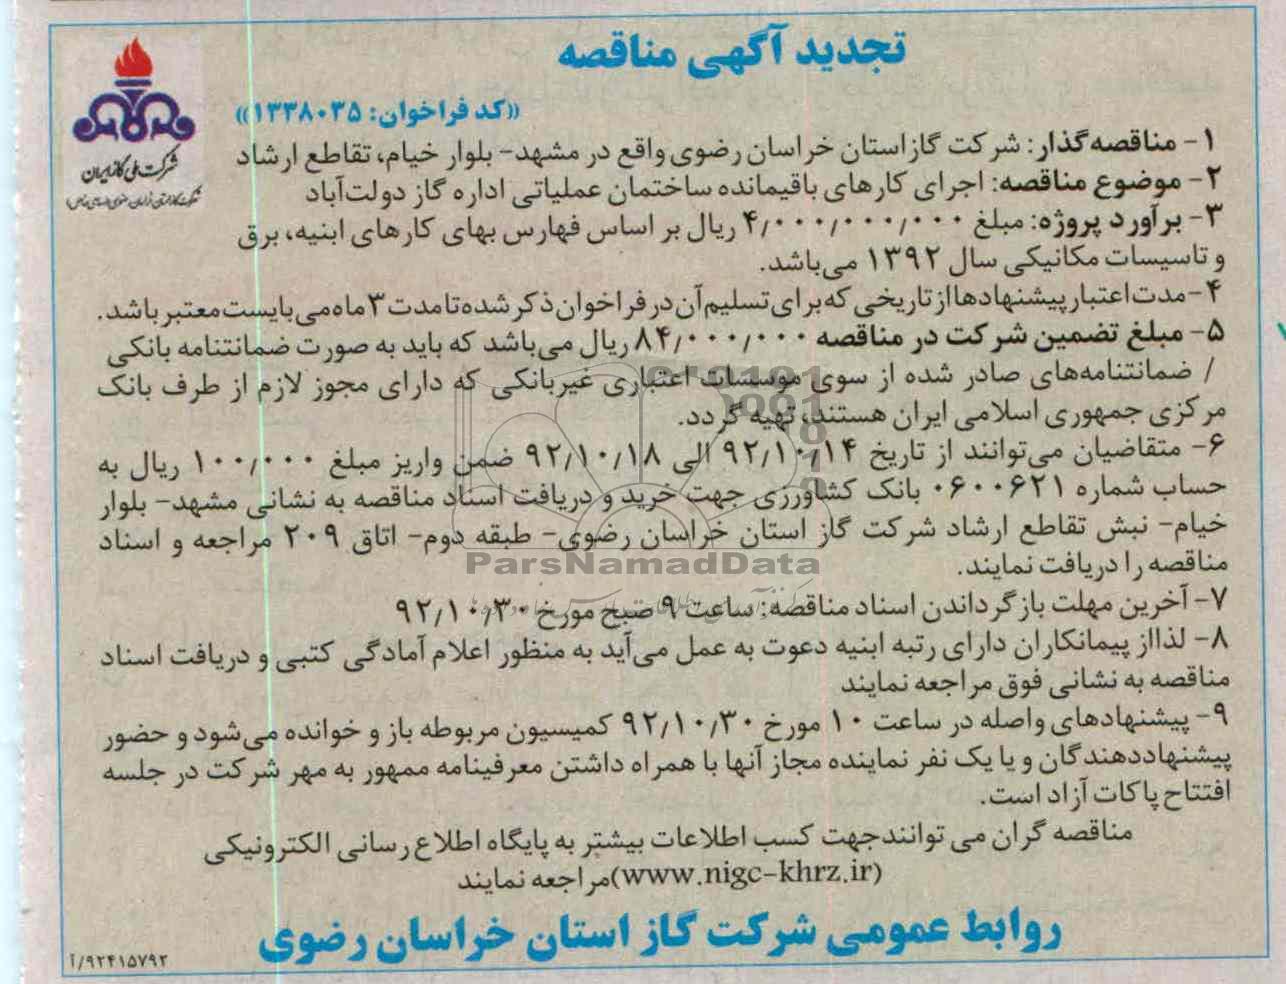 تجدید آگهی مناقصه
«کد فراخوان: ۱۳۳۸۰۳۵»
شرکت ملی گاز ایران
۱- مناقصه‌گذار: شرکت گاز استان خراسان رضوی واقع در مشهد- بلوار خیام، تقاطع ارشاد
۲- موضوع مناقصه: اجرای کارهای باقیمانده ساختمان عملیاتی اداره گاز دولت‌آباد
۳- برآورد پروژه: مبلغ ۴/۰۰۰/۰۰۰/۰۰۰ ریال بر اساس فهارس بهای کارهای ابنیه، برق
و تاسیسات مکانیکی سال ۱۳۹۲ می‌باشد.
۴- مدت اعتبار پیشنهادها از تاریخی که برای تسلیم آن در فراخوان ذکر شده تا مدت ۳ ماه می‌بایست معتبر باشد.
۵- مبلغ تضمین شرکت در مناقصه ۸۴/۰۰۰/۰۰۰ ریال می‌باشد که باید به صورت ضمانتنامه بانکی
/ ضمانتنامه‌های صادر شده از سوی موسسات اعتباری غیربانکی که دارای مجوز لازم از طرف بانک
مرکزی جمهوری اسلامی ایران هستند، تهیه گردد.
۶- متقاضیان می‌توانند از تاریخ ۹۲/۱۰/۱۴ الی ۹۲/۱۰/۱۸ ضمن واریز مبلغ ۱۰۰/۰۰۰ ریال به
حساب شماره ۰۶۰۰۶۲۱ بانک کشاورزی جهت خرید و دریافت اسناد مناقصه به نشانی مشهد- بلوار
خیام- نبش تقاطع ارشاد شرکت گاز استان خراسان رضوی- طبقه دوم- اتاق ۲۰۹ مراجعه و اسناد
مناقصه را دریافت نمایند.
ParsNamadData
۷- آخرین مهلت بازگرداندن اسناد مناقصه: ساعت ۹ صبح مورخ ۹۲/۱۰/۳۰
۸- لذا از پیمانکاران دارای رتبه ابنیه دعوت به عمل می‌آید به منظور اعلام آمادگی کتبی و دریافت اسناد
مناقصه به نشانی فوق مراجعه نمایند
۹- پیشنهادهای واصله در ساعت ۱۰ مورخ ۹۲/۱۰/۳۰ کمیسیون مربوطه باز و خوانده می‌شود و حضور
پیشنهاددهندگان و یا یک نفر نماینده مجاز آنها با همراه داشتن معرفینامه ممهور به مهر شرکت در جلسه
افتتاح پاکات آزاد است.
مناقصه گران می توانند جهت کسب اطلاعات بیشتر به پایگاه اطلاع رسانی الکترونیکی
(www.nigc-khrz.ir) مراجعه نمایند
روابط عمومی شرکت گاز استان خراسان رضوی
۹۲۴۱۵۷۹۲/آ